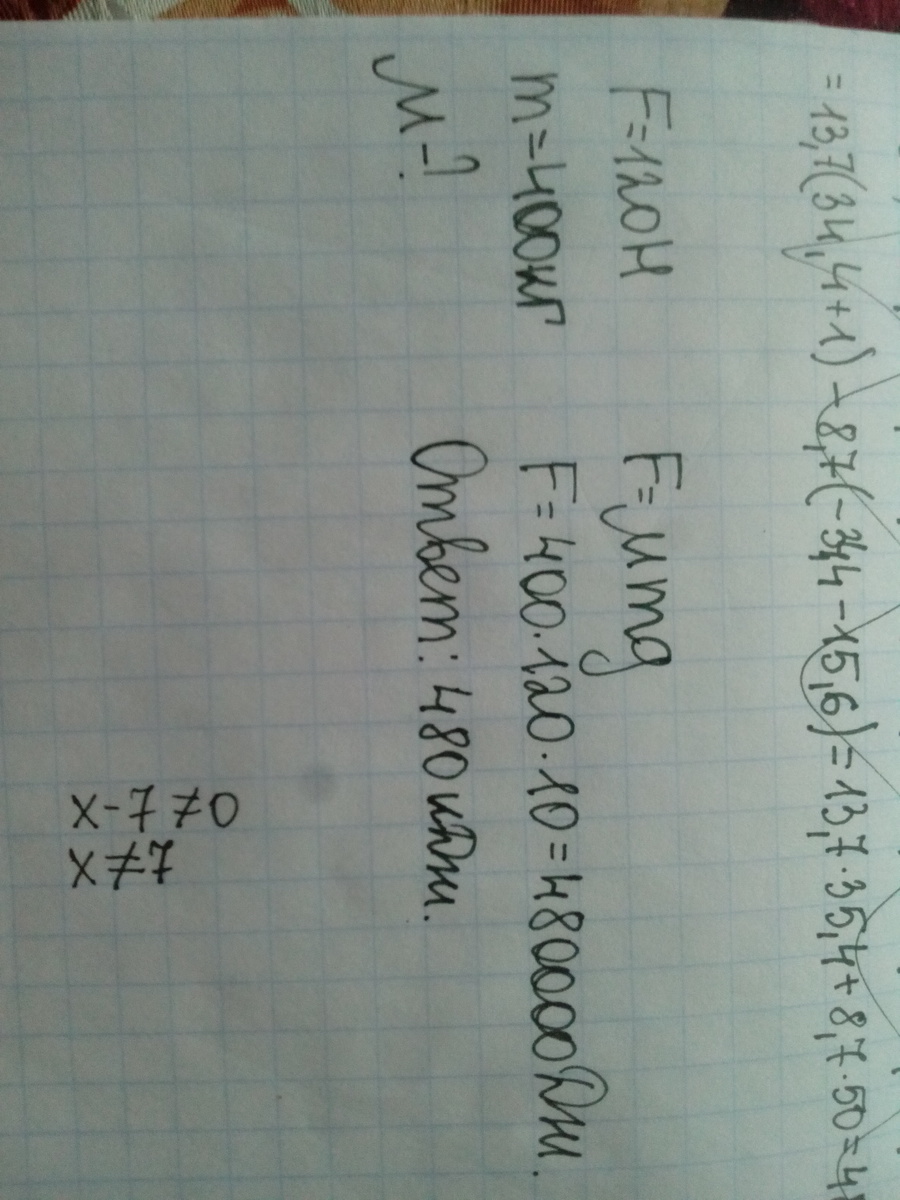 = 13,7(34,4+1) - 8,7(-34,4 - 15,6) = 13,7·35,4 + 8,7·50 =
F=120Н
m=400кг
μ-?
F=μmg
F=400·120·10=480000Дж.
Ответ: 480кДж.
0≠7-x
x≠7